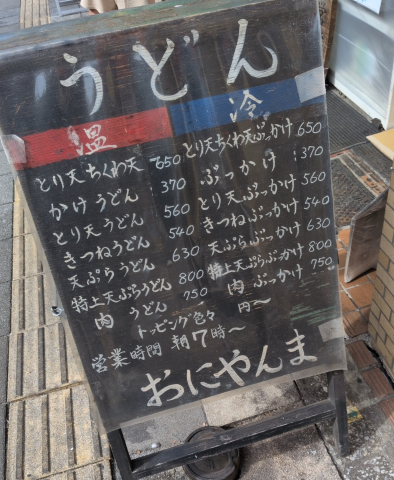 うどん
温
とり天ちくわ天 650
かけうどん 370
とり天うどん 560
きつねうどん 540
天ぷらうどん 630
特上天ぷらうどん 800
肉うどん 750
冷
とり天ちくわ天ぶっかけ 650
ぶっかけ 370
とり天ぶっかけ 560
きつねぶっかけ 540
天ぷらぶっかけ 630
特上天ぷらぶっかけ 800
肉ぶっかけ 750
トッピング色々 円〜
営業時間 朝7時〜
おにやんま